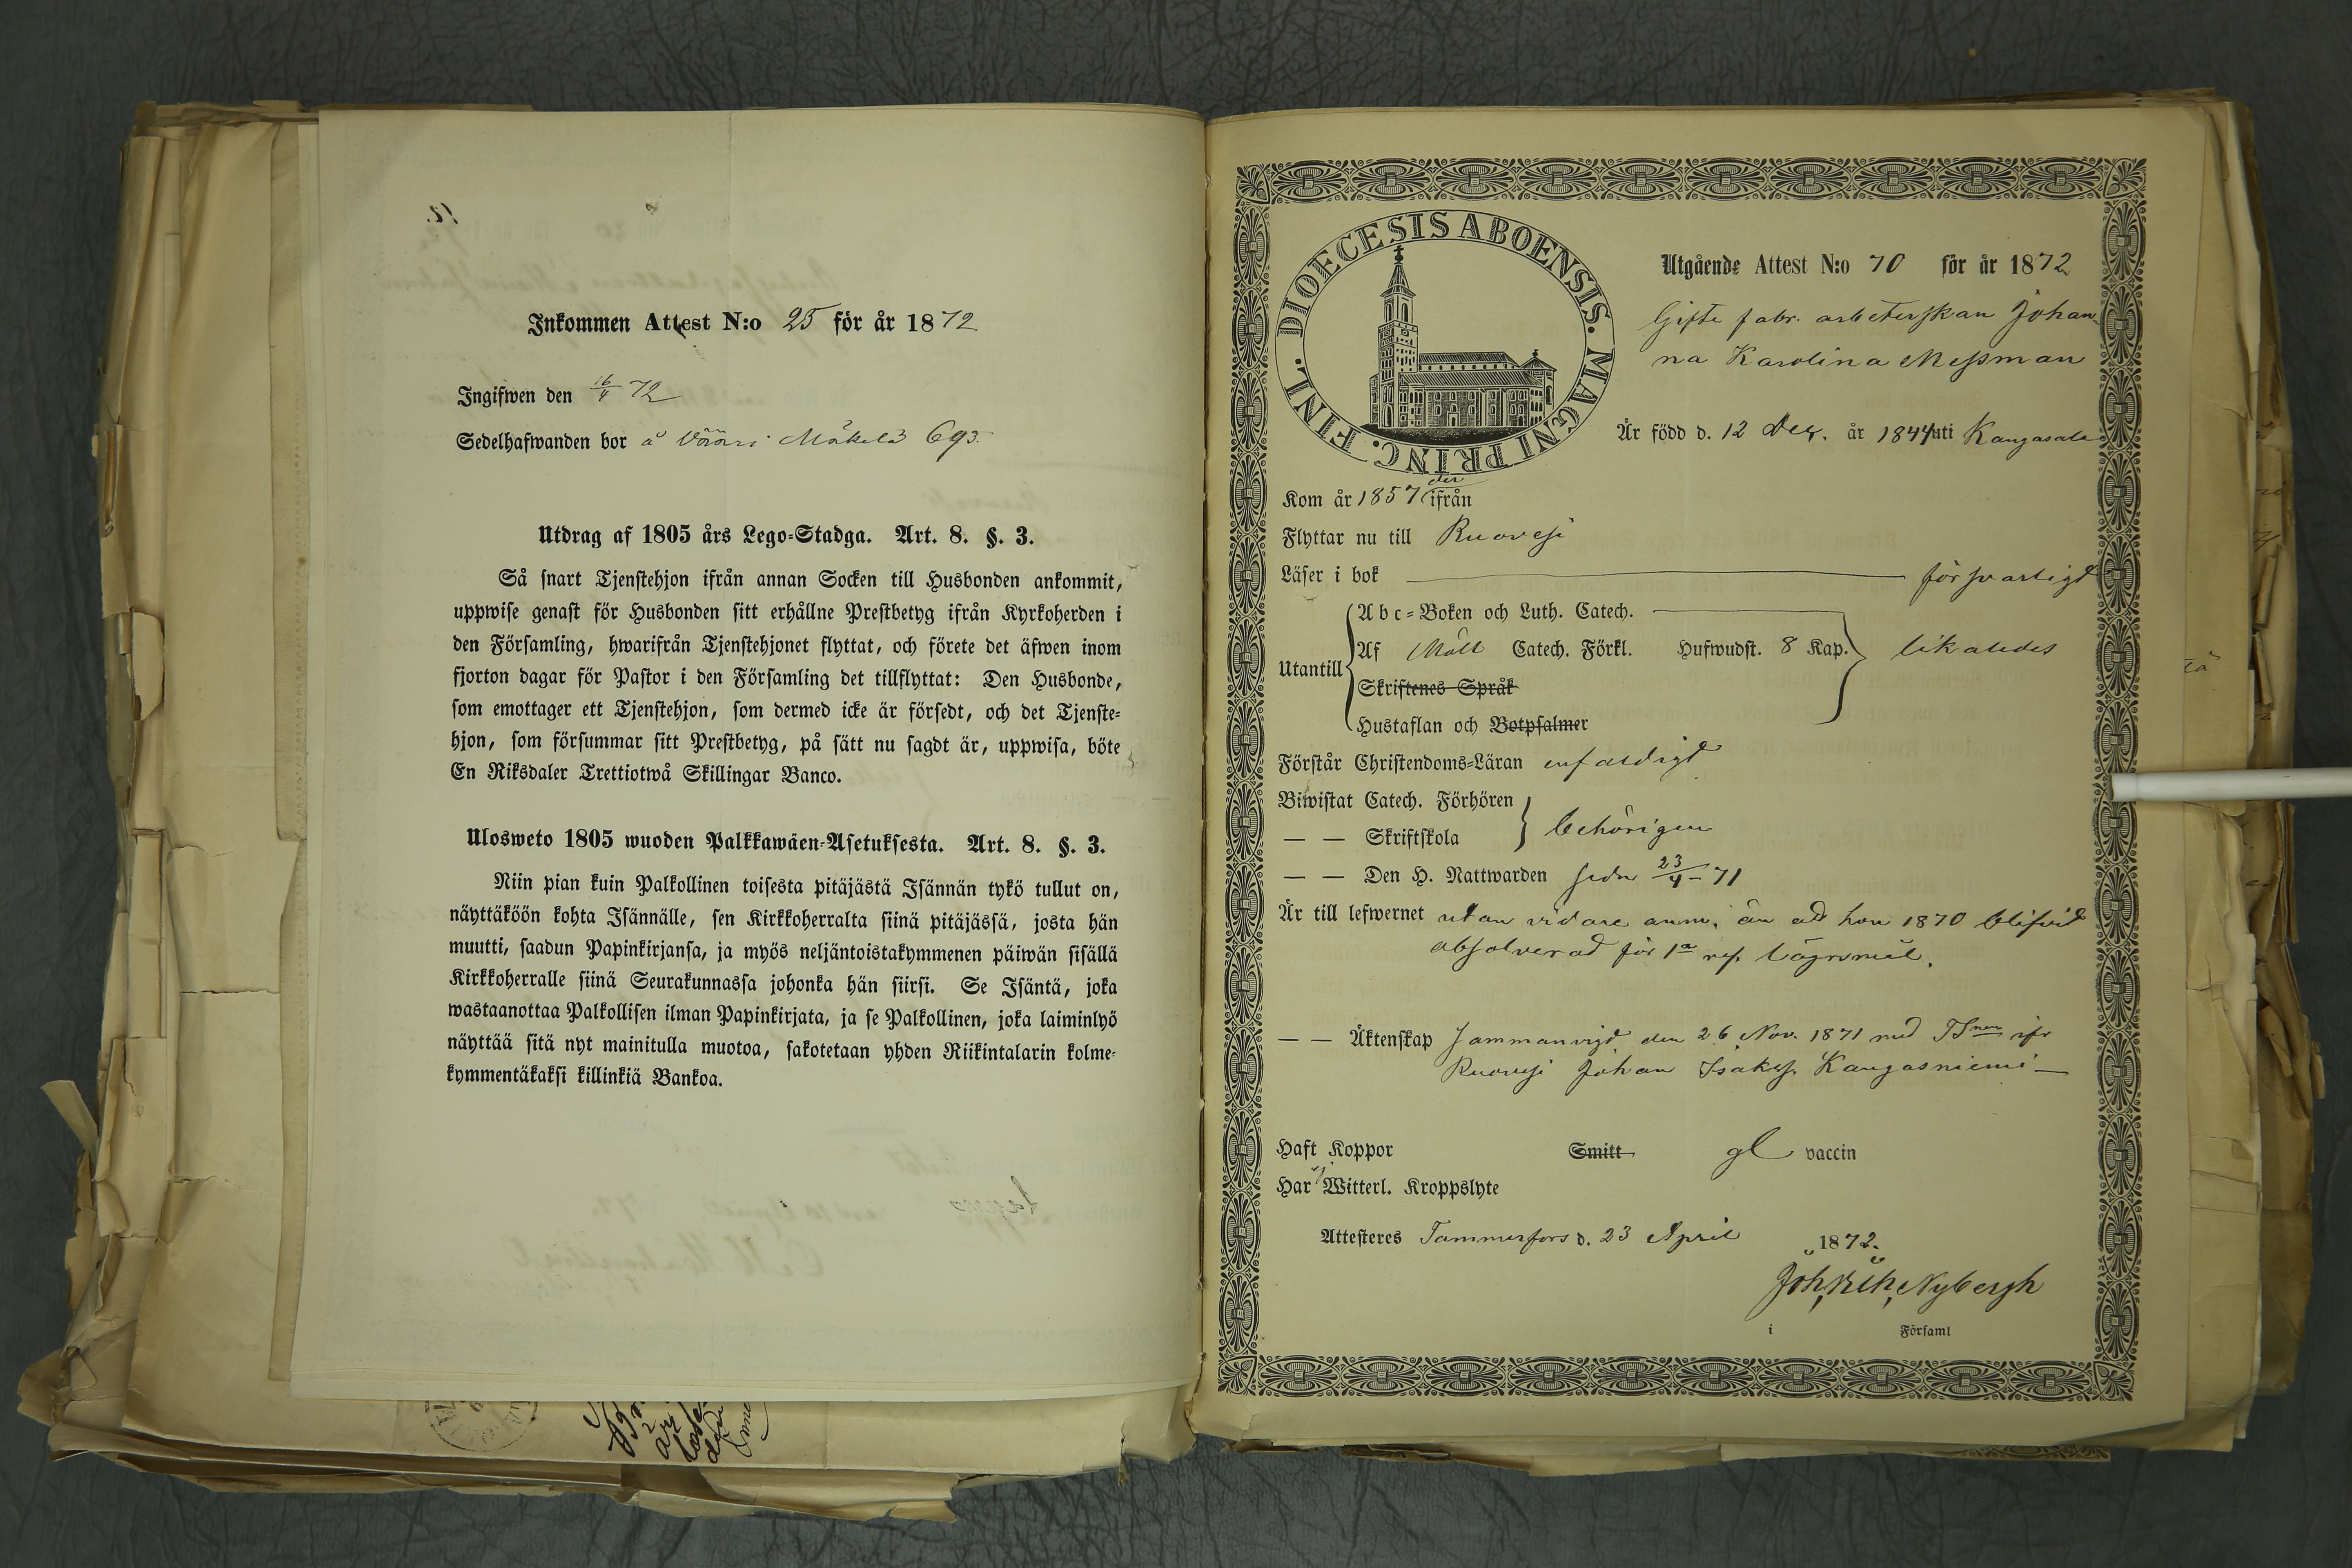 Inkommen Attest N:o 25 för år 1872
Ingifwen den 16/4 72
Sedelhafwanden bor å Vääri Mäkelä 693.
Utdrag af 1805 års Lego-Stadga. Art. 8. §. 3.
Så snart Tjenstehjon ifrån annan Socken till Husbonden ankommit,
uppwise genast för Husbonden sitt erhållne Prestbetyg ifrån Kyrkoherden i
den Församling, hwarifrån Tjenstehjonet flyttat, och förete det äfwen inom
fjorton dagar för Pastor i den Församling det tillflyttat: Den Husbonde,
som emottager ett Tjenstehjon, som dermed icke är försedt, och det Tjenste-
hjon, som försummar sitt Prestbetyg, på sätt nu sagdt är, uppwisa, böte
En Riksdaler Trettiotwå Skillingar Banco.
Ulosweto 1805 wuoden Palkkawäen-Asetuksesta. Art. 8. §. 3.
Niin pian kuin Palkollinen toisesta pitäjästä Isännän tykö tullut on,
näyttäköön kohta Isännälle, sen Kirkkoherralta siinä pitäjässä, josta hän
muutti, saadun Papinkirjansa, ja myös neljäntoistakymmenen päiwän sisällä
Kirkkoherralle siinä Seurakunnassa johonka hän siirsi. Se Isäntä, joka
wastaanottaa Palkollisen ilman Papinkirjata, ja se Palkollinen, joka laiminlyö
näyttää sitä nyt mainitulla muotoa, sakotetaan yhden Riikintalarin kolme-
kymmentäkaksi killinkiä Bankoa.
DIOECESIS ABOENSIS. MAGNI PRINC. FINL.
Utgående Attest N:o 70 för år 1872
Gifte fabr. arbeterskan Johan-
na Karolina Messman
Är född d. 12 Dec. år 1844 uti Kangasala
Kom år 1857 der ifrån
Flyttar nu till Ruovesi
Läser i bok försvarligt
Abc-Boken och Luth. Catech.
Utantill Af Möll Catech. Förkl. Hufwudst. 8 Kap. likaledes
Skriftenes Språk
Hustaflan och Botpsalmer
Förstår Christendoms-Läran enfaldigt
Biwistat Catech. Förhören
— — Skriftskola behörigen
— — Den H. Nattwarden sedn 23/4 - 71
Är till lefwernet utan vidare anm. än att hon 1870 blifvit
absolverad för 1a res. lägersmål.
— — Äktenskap Sammanvigd den 26 Nov. 1871 med TSnen ifr
Ruovesi Johan Isakss. Kangasniemi —
Haft Koppor Smitt gl vaccin
Har ej Witterl. Kroppslyte
Attesteres Tammerfors d. 23 April 1872.
Joh. Wilh. Nybergh
i Församl